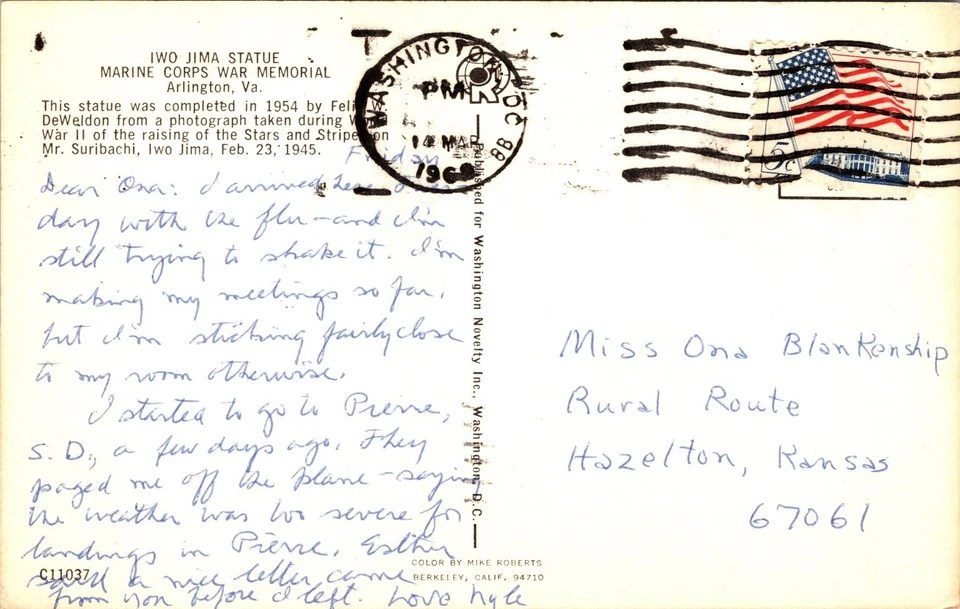 IWO JIMA STATUE
MARINE CORPS WAR MEMORIAL
Arlington, Va.
This statue was completed in 1954 by Feli
DeWeldon from a photograph taken during W
War II of the raising of the Stars and Stripe on
Mr. Suribachi, Iwo Jima, Feb. 23, 1945.
Friday
Dear Ona: I arrived here
day with the flu - and I'm
still trying to shake it. I'm
making my meetings so far,
but I'm sticking fairly close
to my room otherwise.
I started to go to Pierre,
S. D., a few days ago. They
paged me off the plane - saying
the weather was too severe for
landings in Pierre. Esther
said a nice letter came
from you before I left. Love Lyle
C11037
WASHINGTON, DC
PM
14 MAR
1968
8B
R
5c
Published for Washington Novelty Inc., Washington, D.C.
COLOR BY MIKE ROBERTS
BERKELEY, CALIF. 94710
Miss Ona Blankenship
Rural Route
Hazelton, Kansas
67061